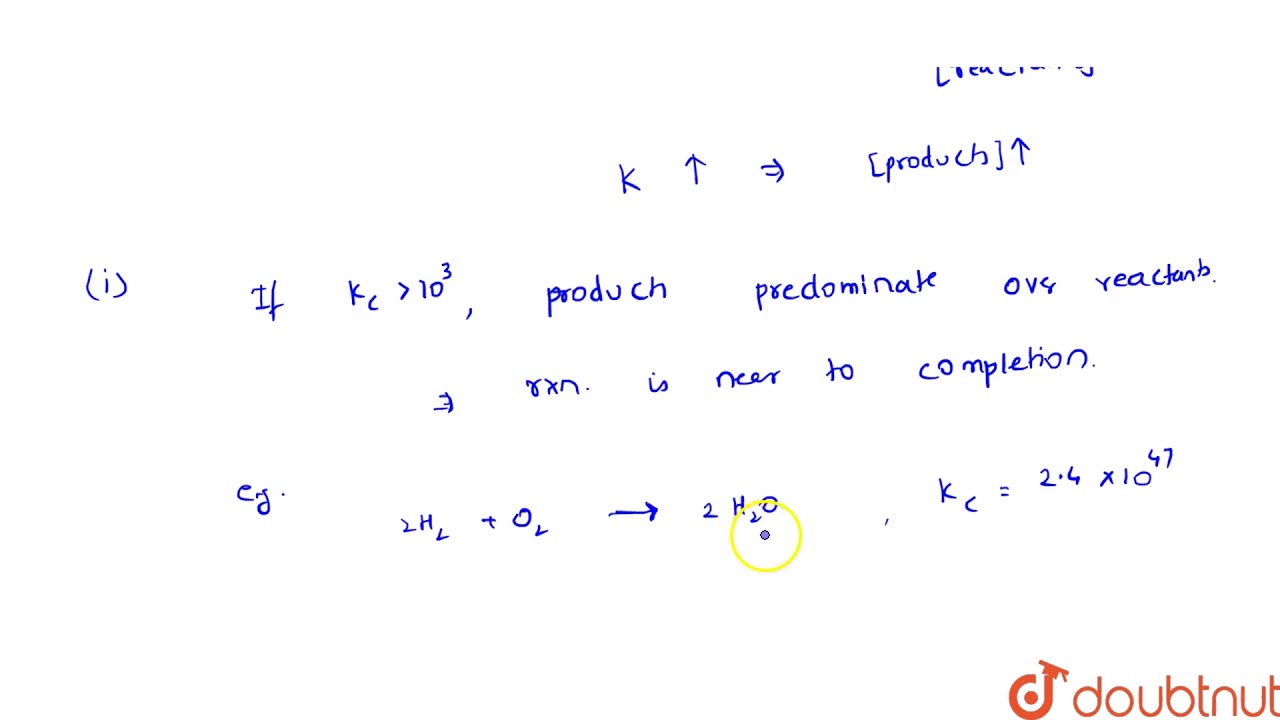 K ↑ ⇒ [products]↑
(i) If Kc > 10³, products predominate over reactants.
⇒ rxn. is near to completion.
eg. 2H₂ + O₂ → 2 H₂O , Kc = 2.4 × 10⁴⁷
doubtnut